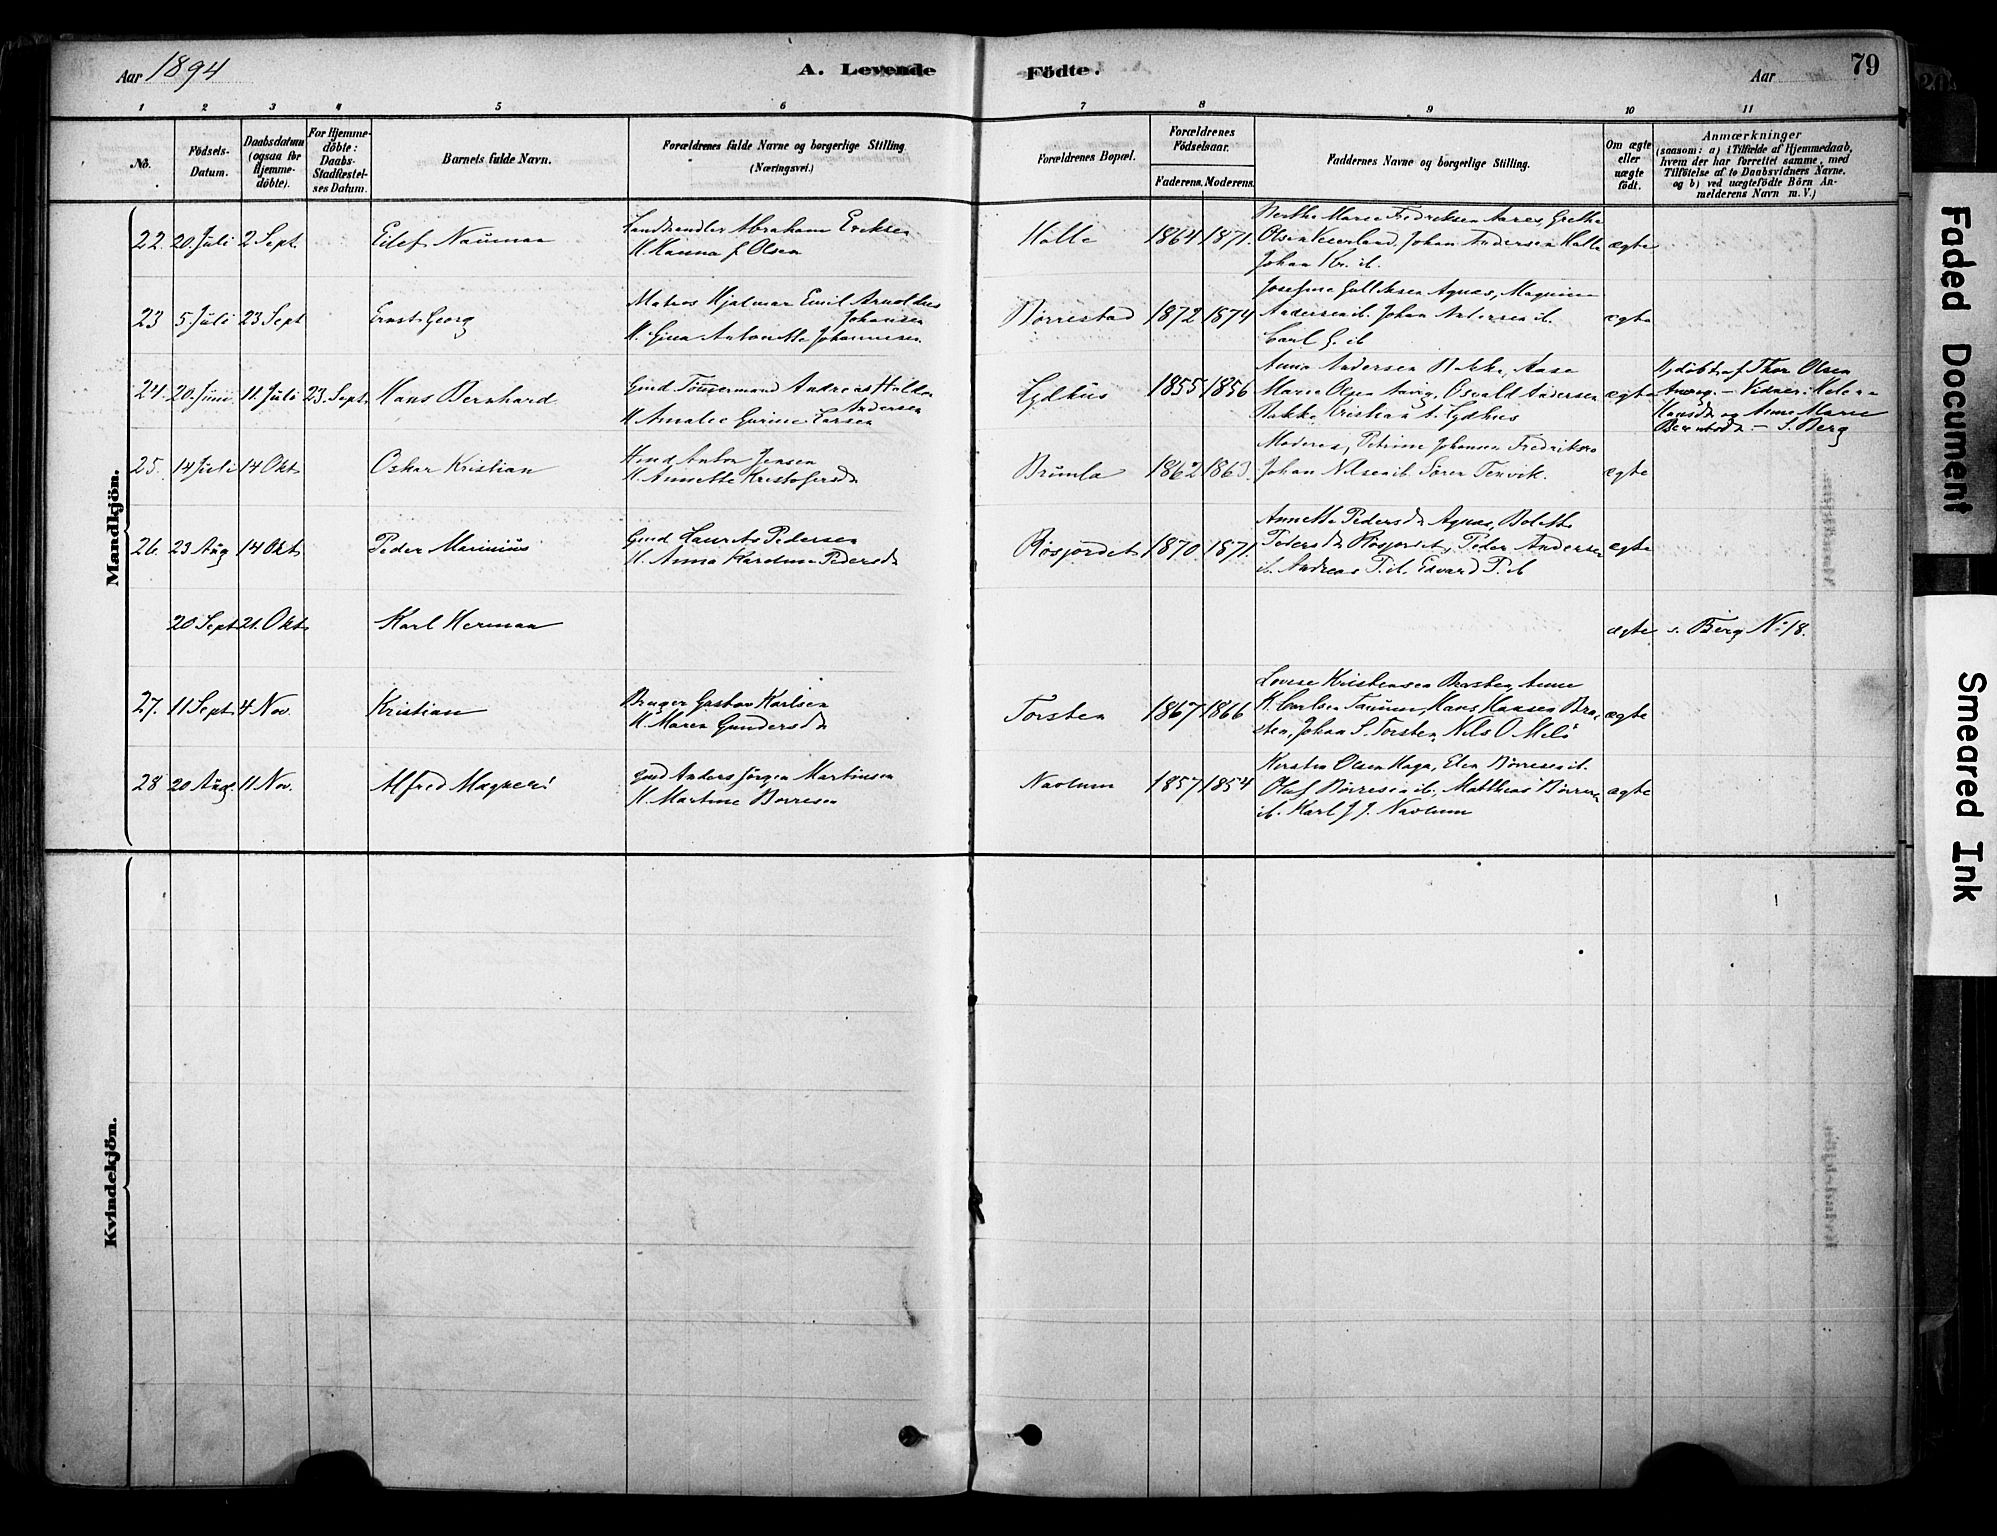 Aar 1894
A. Levende Födte.
Aar
79
1 2 3 4 5 6 7 8 9 10 11
No.
Födsels-Datum.
Daabsdatum (ogsaa for Hjemme-döbte).
For Hjemme-döbte: Daabs-Stadfæstelses Datum.
Barnets fulde Navn.
Forældrenes fulde Navne og borgerlige Stilling
(Næringsvei.)
Forældrenes Bopæl.
Forældrenes Födselsaar.
Faderens. Moderens.
Faddernes Navne og borgerlige Stilling.
Om ægte eller uægte födt.
Anmærkninger
(saasom: a) i Tilfælde af Hjemmedaab,
hvem der har forrettet samme, med
Tilföielse af to Daabsvidners Navne.
og b) ved uægtefödte Börn An-
melderens Navn m. V.)
Mandkjön.
22. 20. Juli 2 Sept. Eilef Nauman
Landhandler Abraham Eriksen
H. Hanna J. Olsen
Halle 1864 1871.
Berthe Marie Fredriksen Aares, Grethe
Olsen Veierland, Johan Andersen Halle
Johan Kr. ib.
ægte
23 5. Juli 23 Sept Ernst Georg
Matros Hjalmar Emil Arnoldus
Johansen
H. Gina Antonette Johannesen
Börrestad 1872 1874
Josefine Gulliksen Agnæs,
Andersen ib. Johan Andersen ib.
Carl G. ib
ægte
24. 20. Juni 11. Juli 23. Sept. Hans Bernhard
Gmd Tömmermand Andreas
Andersen
H. Amalie Gurine Larsen
Lydhus 1855 1856
Anna Andersen Bakke, Aase
Marie Olsen Osvald Andersen
Bakke Kristian A. Lydhus
ægte
Hjdöbt af Thor Olsen
Vidner:
Hansdr og Anne Marie
S. Berg
25. 14 Juli 14 Okt Oskar Kristian
Hmd Anton Jensen
H. Annette Kristofersdr
Brunla 1862 1863.
Moderen, Petrine Johansen
Johan Nilsen ib. Sören Tenvik.
ægte
26. 23 Aug 14 Okt Peder Marinius
Gmd Laurits Pedersen
H. Anna Karoline Pedersdr
Røsjordet 1870 1871.
Annette Pedersdr Agnæs, Bolette
Pedersdr Røsjordet, Peder Andersen
ib. Andreas P. ib. Edvard P. ib
ægte
20 Sept 21. Okt Karl Herman
ægte s. Berg No 18.
27. 11 Sept 4 Nov. Kristian
Bruger Gustav Karlsen
H. Maren Gundersdr
Torsten 1867 1866
Lovise Kristensen Anne
K. Carlsen Hans Hansen Bra-
sten, Johan S. Torsten, Nils O. Melö
ægte
28 20 Aug. 11 Nov. Alfred Magner
Gmd Anders Jörgen Martinsen
H. Martine Børresen
Navlum 1857 1854
Kirsten Olsen Haga, Elen Børresen ib.
Oluf Børresen ib, Matthias Børresen
ib. Karl J. J. Navlum
ægte
Kvindekjön.
Faded Document
Smeared Ink